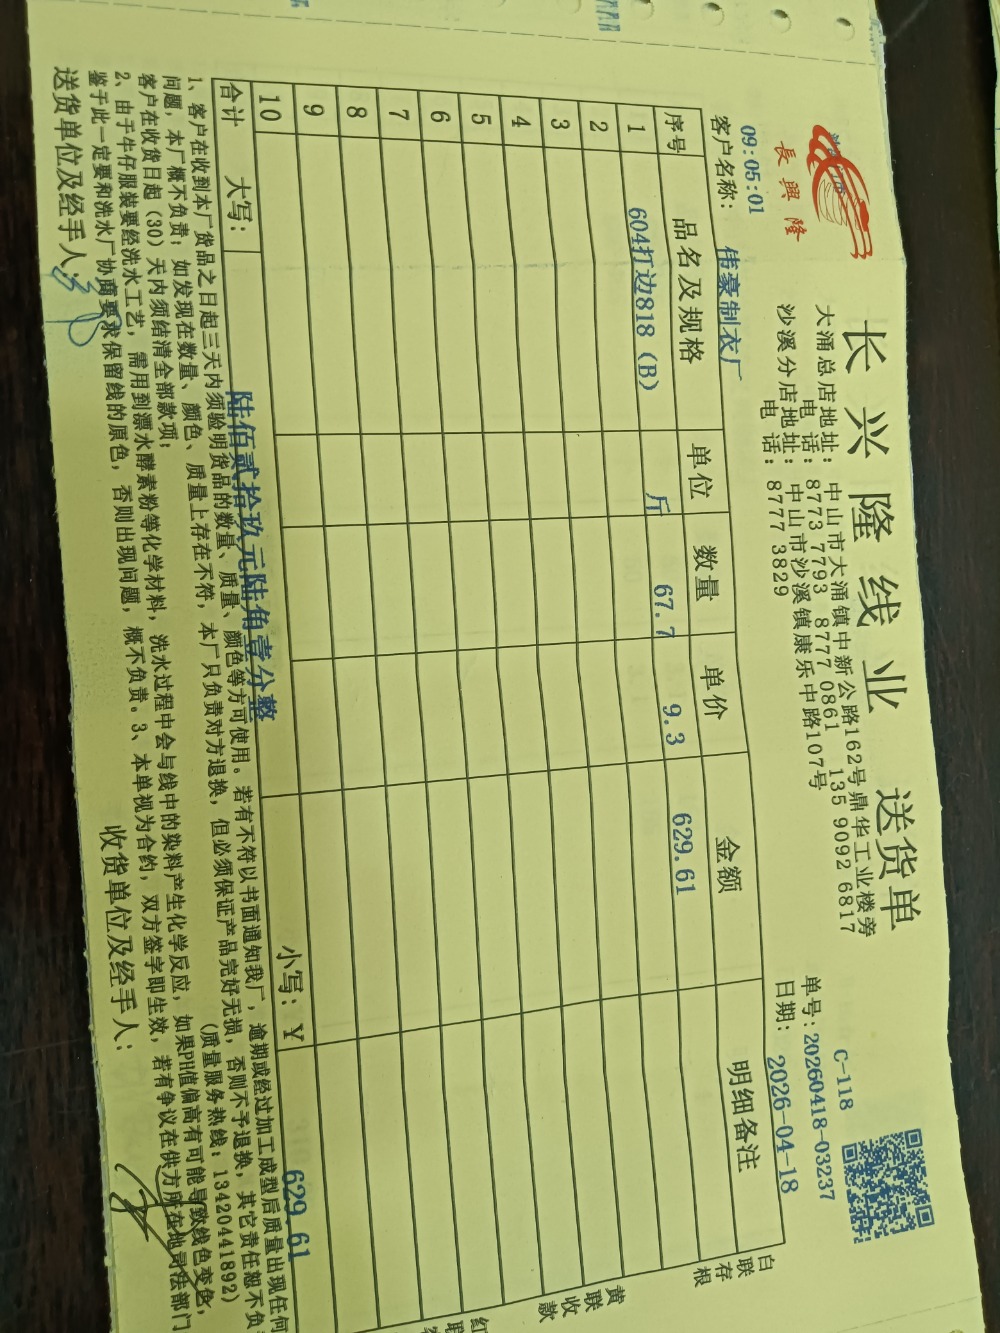 長興隆
长兴隆线业 送货单
大涌总店地址: 中山市大涌镇中新公路162号鼎华工业楼旁
电 话: 8773 7793 8777 0861 135 9092 6817
沙溪分店地址: 中山市沙溪镇康乐中路107号
电 话: 8777 3829
C-118
单号: 20260418-03237
日期: 2026-04-18
09:05:01
客户名称: 伟豪制衣厂
序号 品名及规格 单位 数量 单价 金额 明细备注
1 604打边818（B） 斤 67.7 9.3 629.61
2
3
4
5
6
7
8
9
10
合计 大写: 陆佰贰拾玖元陆角壹分整 小写: ￥ 629.61
1、客户在收到本厂货品之日起三天内须验明货品的数量、质量、颜色等方可使用。若有不符以书面通知我厂, 逾期或经过加工成型后质量出现任何
问题, 本厂概不负责; 如发现在数量、颜色、质量上存在不符, 本厂只负责对方退换, 但必须保证产品完好无损, 否则不予退换, 其它责任恕不负
客户在收货日起（30）天内须结清全部款项; (质量服务热线: 13420441892)
2、由于牛仔服装要经洗水工艺, 需用到漂水酵素粉等化学材料, 洗水过程中会与线中的染料产生化学反应, 如果PH值偏高有可能导致线色变色,
鉴于此一定要和洗水厂协商要求保留线的原色, 否则出现问题, 概不负责。3、本单视为合约, 双方签字即生效, 若有争议在供方所在地司法部门
送货单位及经手人: 收货单位及经手人:
白联存根
黄联收款
红联